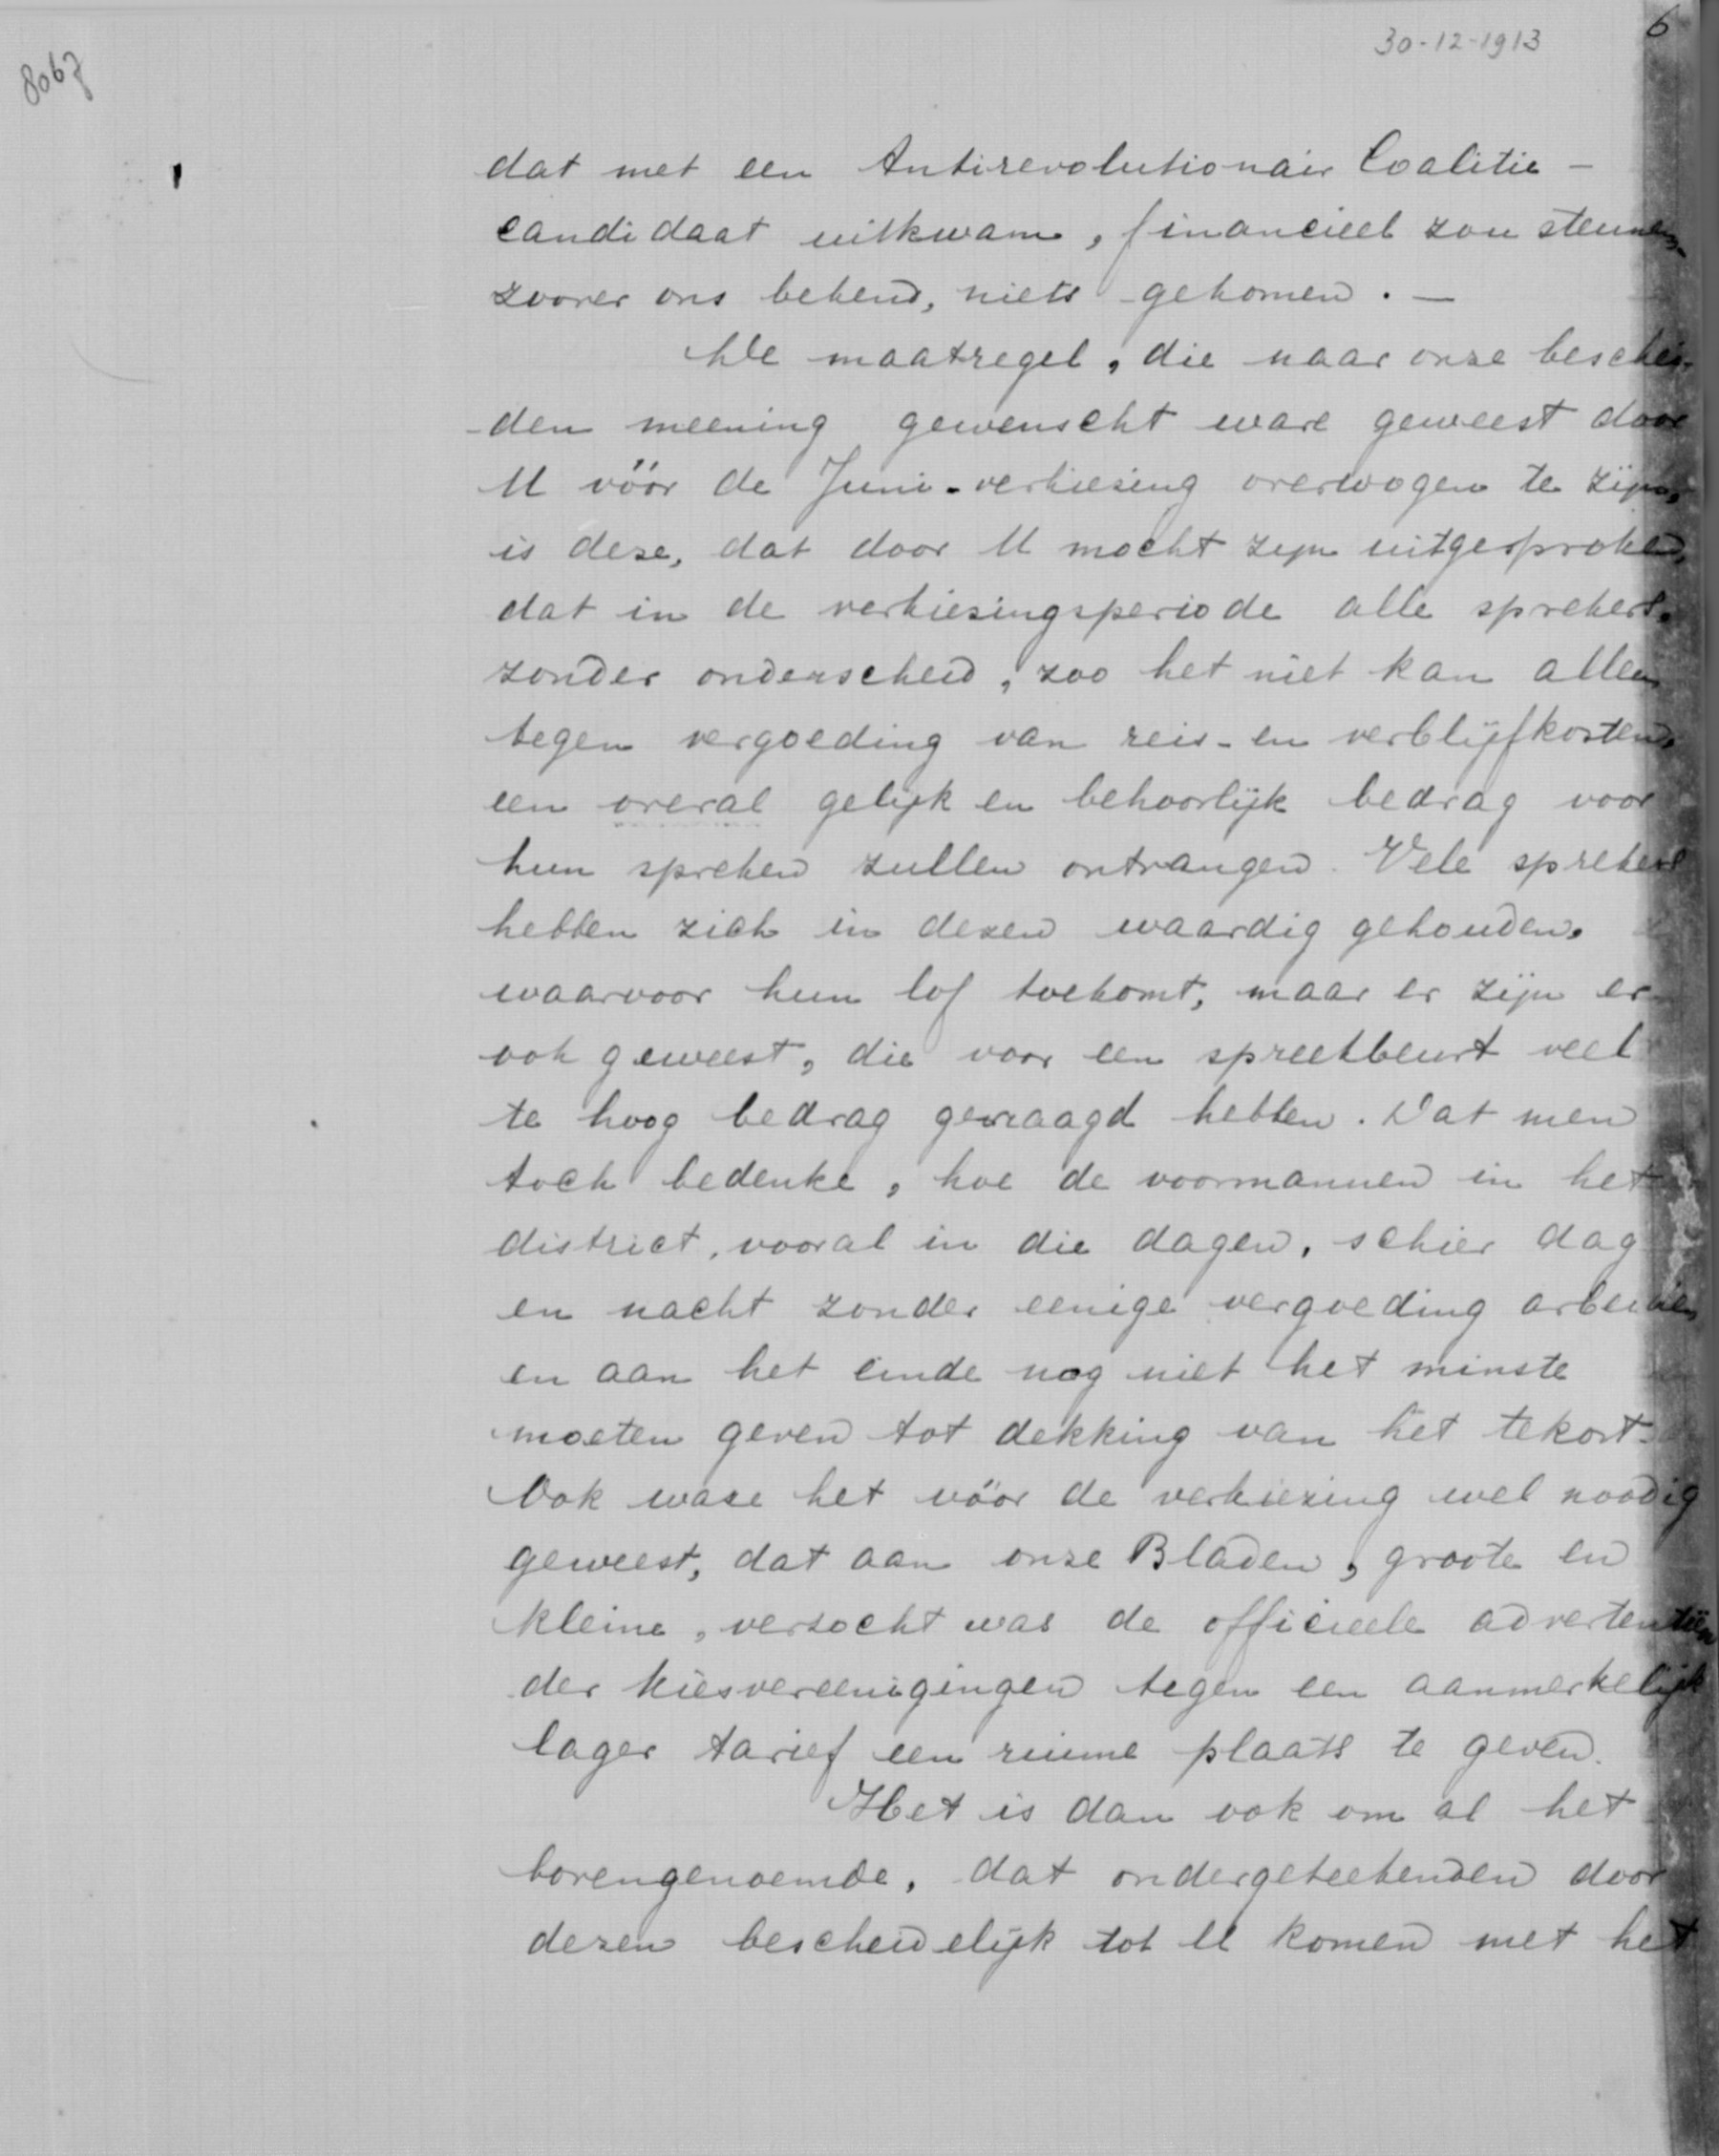 30-12-1913
6
8067
dat met een Antirevolutionair Coalitie -
candidaat uitkwam, financieel zou steunen,
zoover ons bekend, niets gekomen. —
De maatregel, die naar onze beschei-
-den meening gewenscht ware geweest door
U vóór de Juni-verkiesing overwogen te zijn,
is deze, dat door U mocht zijn uitgesproken,
dat in de verkiesingsperiode alle sprekers,
zonder onderscheid, zoo het niet kan alleen
tegen vergoeding van reis- en verblijfkosten,
een overal gelijk en behoorlijk bedrag voor
hun spreken zullen ontvangen. Vele sprekers
hebben zich in dezen waardig gehouden,
waarvoor hun lof toekomt, maar er zijn er
ook geweest, die voor een spreekbeurt veel
te hoog bedrag gevraagd hebben. Dat men
toch bedenke, hoe de voormannen in het
district, vooral in die dagen, schier dag
en nacht zonder eenige vergoeding arbeiden
en aan het einde nog niet het minste
moeten geven tot dekking van het tekort.
Ook ware het vóór de verkiezing wel noodig
geweest, dat aan onze Bladen, groote en
kleine, verzocht was de officieele advertentiën
der kiesvereenigingen tegen een aanmerkelijk
lager tarief een ruime plaats te geven.
Het is dan ook om al het
bovengenoemde, dat ondergeteekenden door
dezen bescheidelijk tot U komen met het